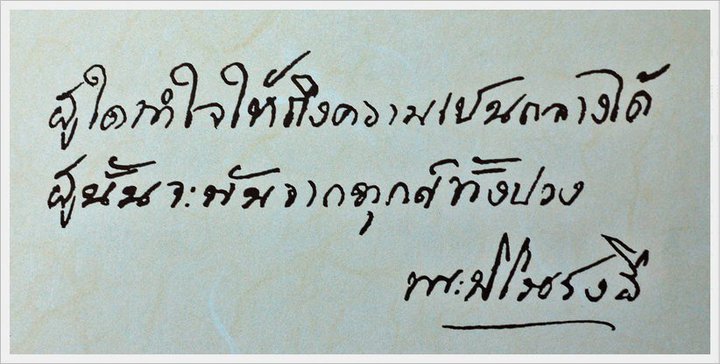 ผู้ใดทำใจให้ถึงความเป็นกลางได้
ผู้นั้นจะพ้นจากทุกข์ทั้งปวง
พระนิโรธรังสี